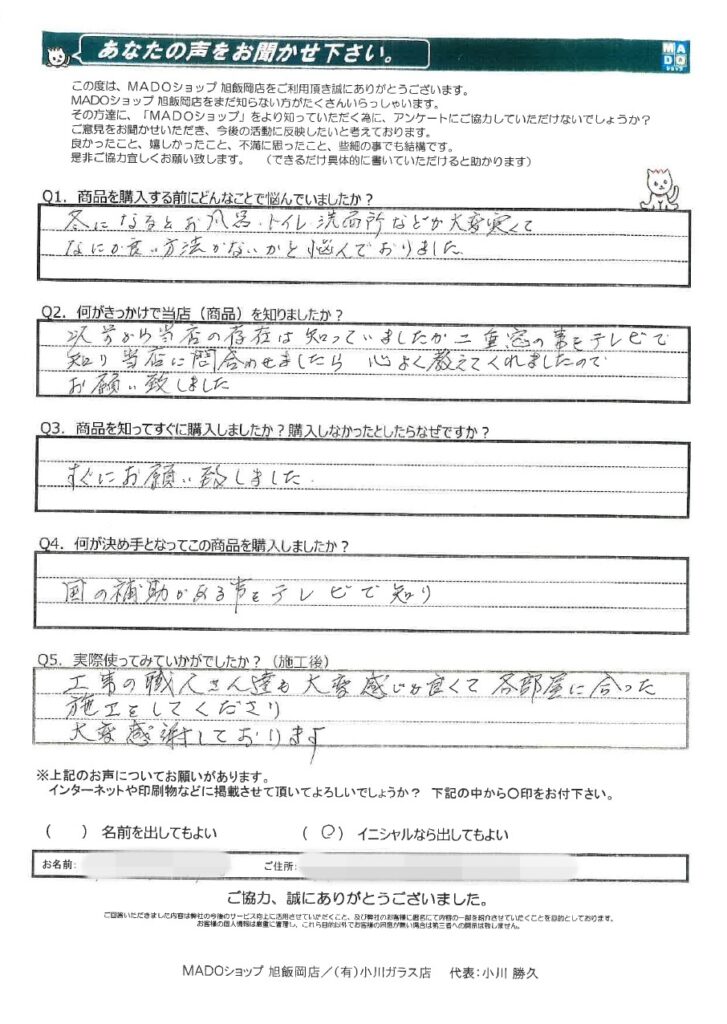 あなたの声をお聞かせ下さい。
MADO
ショップ
この度は、MADOショップ 旭飯岡店をご利用頂き誠にありがとうございます。
MADOショップ 旭飯岡店をまだ知らない方がたくさんいらっしゃいます。
その方達に、「MADOショップ」をより知っていただく為に、アンケートにご協力していただけないでしょうか？
ご意見をお聞かせいただき、今後の活動に反映したいと考えております。
良かったこと、嬉しかったこと、不満に思ったこと、些細の事でも結構です。
是非ご協力宜しくお願い致します。 （できるだけ具体的に書いていただけると助かります）
Q1．商品を購入する前にどんなことで悩んでいましたか？
冬になるとお風呂・トイレ・洗面所などが大変寒くて
なにか良い方法がないかと悩んでおりました
Q2．何がきっかけで当店（商品）を知りましたか？
以前から当店の存在は知っていましたが二重窓の事をテレビで
知り当店に問合わせましたら 心よく教えてくれましたので
お願い致しました
Q3．商品を知ってすぐに購入しましたか？購入しなかったとしたらなぜですか？
すぐにお願い致しました.
Q4．何が決め手となってこの商品を購入しましたか？
国の補助がある事をテレビで知り
Q5．実際使ってみていかがでしたか？（施工後）
工事の職人さん達も大変感じが良くて各部屋に合った
施工をしてくださり
大変感謝しております
※上記のお声についてお願いがあります。
インターネットや印刷物などに掲載させて頂いてよろしいでしょうか？ 下記の中から〇印をお付下さい。
（ ）名前を出してもよい （○）イニシャルなら出してもよい
お名前： ご住所：
ご協力、誠にありがとうございました。
ご回答いただきました内容は弊社の今後のサービス向上に活用させていただくこと、及び弊社のお客様に匿名にて内容の一部を紹介させていただくことを目的としております。
お客様の個人情報は厳重に管理し、これら目的以外でお客様の同意が無い場合は第三者への開示は致しません。
MADOショップ 旭飯岡店／（有）小川ガラス店 代表：小川 勝久